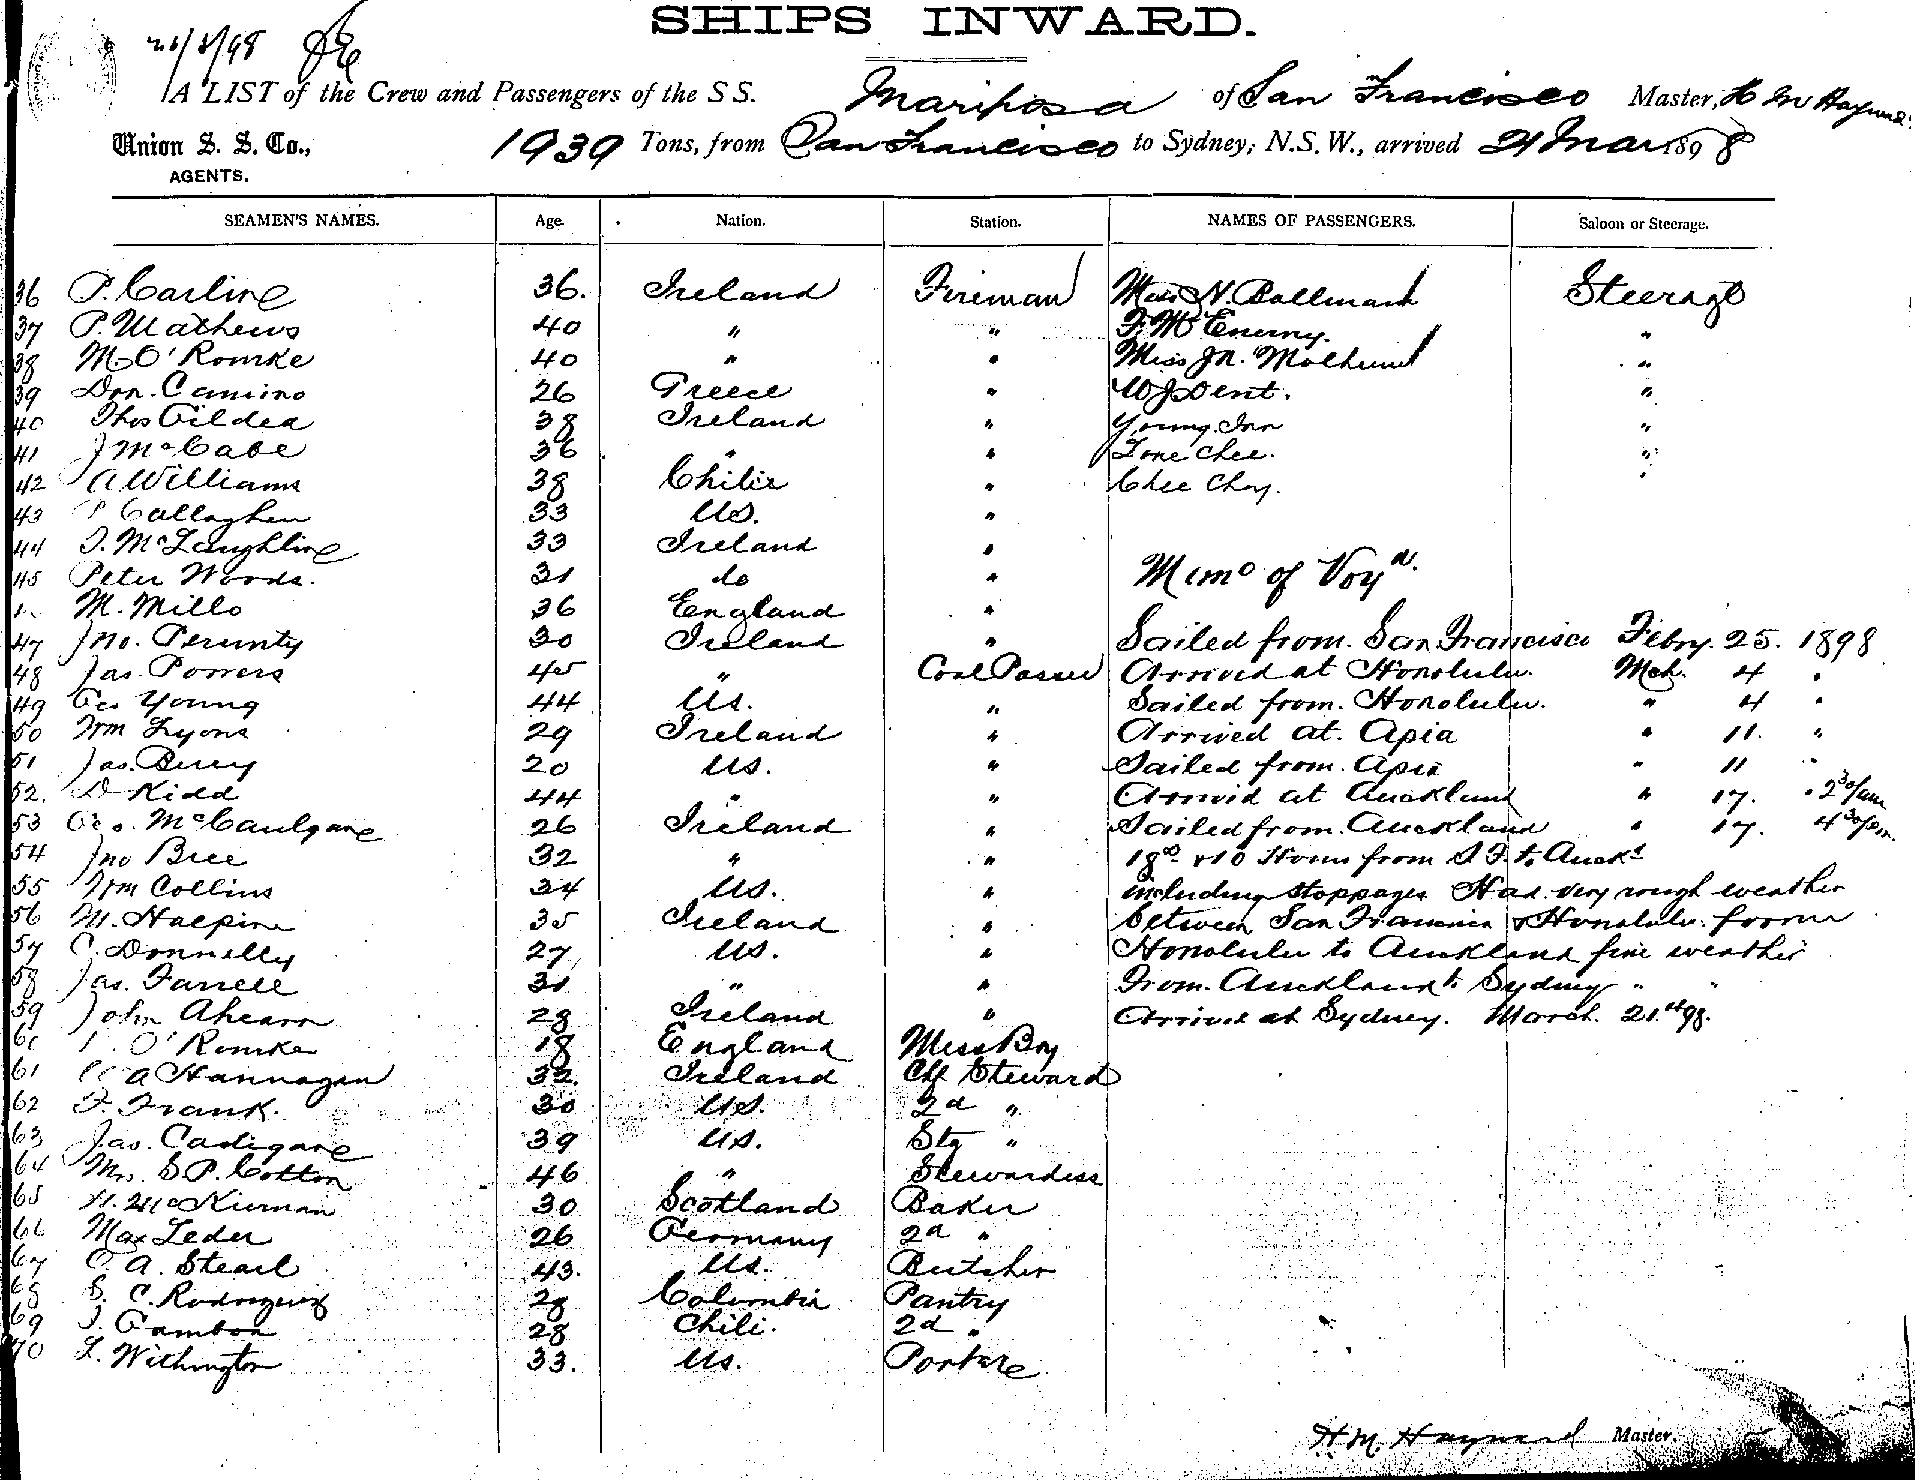 SHIPS INWARD.
A LIST of the Crew and Passengers of the S S. Mariposa of San Francisco Master, H M Hayward
Union S. S. Co.,
AGENTS.
1939 Tons, from San Francisco to Sydney, N.S.W., arrived 21 Mar 1898
SEAMEN'S NAMES. Age. Nation. Station. NAMES OF PASSENGERS. Saloon or Steerage.
36 P. Carline 36. Ireland Fireman Miss N. Steerage
37 P. Mathews 40 " " F. McEnerny. "
38 M. O'Rourke 40 " " Miss "
39 Don. Camino 26 Greece " W J Dent. "
40 Thos Gildea 38 Ireland " Young. "
41 J McCabe 36 " " Chee. "
42 A Williams 38 Chilie " Chee Choy. "
43 P Callaghen 33 US. "
44 McLaughline 33 Ireland "
45 Peter Woods. 31 do " Memo of Voy
M. Mills 36 England "
47 Jno. 30 Ireland " Sailed from. San Francisco Febry. 25. 1898
48 Jas. Powers 45 " Coal Passer Arrived at Honolulu. Mch. 4 "
49 Geo Young 44 US. " Sailed from. Honolulu. " 4 "
50 Wm Lyons 29 Ireland " Arrived at. Apia " 11. "
51 Jas. Berry 20 US. " Sailed from. Apia " 11 "
52. D Kidd 44 " " Arrived at Auckland " 17. " 2 30/am
53 Geo. 26 Ireland " Sailed from. Auckland " 17. 4 30/pm.
54 Jno Bree 32 " " 18 & 10 Hours from S. F. to Auckd
55 Wm Collins 34 US. " including stoppages Had very rough weather
56 M. Halpin 35 Ireland " between San Francisco & Honolulu. from
57 C. Donnelly 27, US. " Honolulu to Auckland fine weather
58 Jas. Farrell 31 " " From. Auckland to Sydney " "
59 John Ahearn 28 Ireland " Arrived at Sydney. March. 21. st 98.
60 O'Rourke 18 England Mess Boy
61 A Hannagan 32. Ireland Chf Steward
62 F. Frank. 30 US. 2d "
63 Jas. Cadigane 39 US. Stg "
64 Mrs. S. P. Cotton 46 " Stewardess
65 H. McKiernan 30 Scotland Baker
66 Max Leder 26 Germany 2d "
67 A. Stearl 43. US. Butcher
68 S. C. 28 Columbia Pantry
69 Gamboa 28 Chili. 2d "
70 L. Withington 33. US. Porter
H. M. Hayward Master.